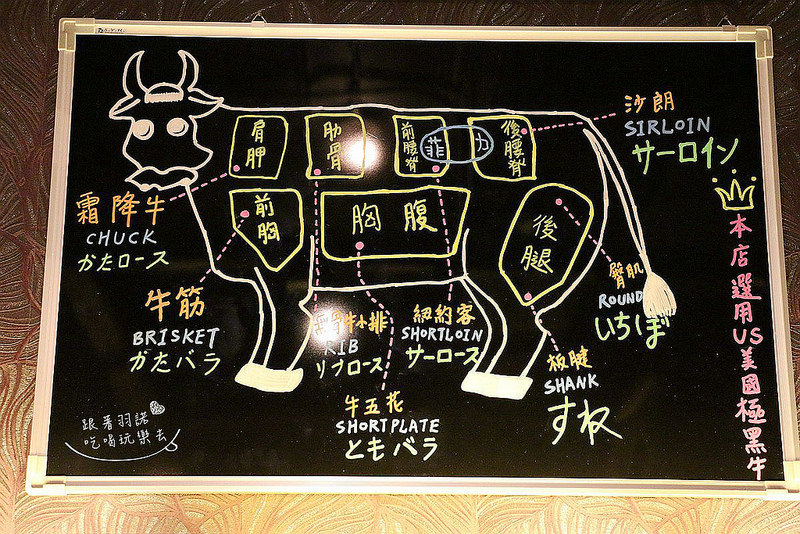 肩胛
肋骨
前腰脊
菲力
後腰脊
前胸
胸腹
後腿
沙朗
SIRLOIN
サーロイン
霜降牛
CHUCK
かたロース
牛筋
BRISKET
かたバラ
牛小排
RIB
リブロース
紐約客
SHORTLOIN
サーロース
牛五花
SHORTPLATE
ともバラ
臀肌
ROUND
いちぼ
板腱
SHANK
すね
本店選用US美國極黑牛
跟著羽諾
吃喝玩樂去